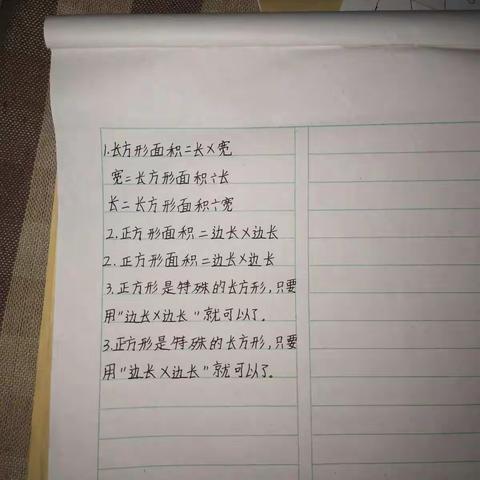 1.长方形面积=长×宽
宽=长方形面积÷长
长=长方形面积÷宽
2.正方形面积=边长×边长
2.正方形面积=边长×边长
3.正方形是特殊的长方形,只要
用"边长×边长"就可以了.
3.正方形是特殊的长方形,只要
用"边长×边长"就可以了.